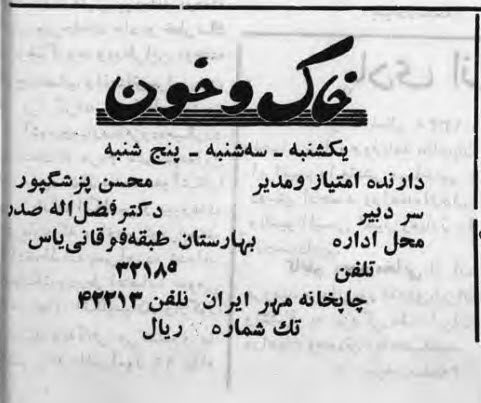 خاک و خون
یکشنبه - سه‌شنبه - پنج شنبه
دارنده امتیاز و مدیر محسن پزشگپور
سر دبیر دکتر فضل‌اله صدر
محل اداره بهارستان طبقه فوقانی یاس
تلفن ۳۲۱۸۵
چاپخانه مهر ایران تلفن ۴۲۲۱۳
تك شماره ریال